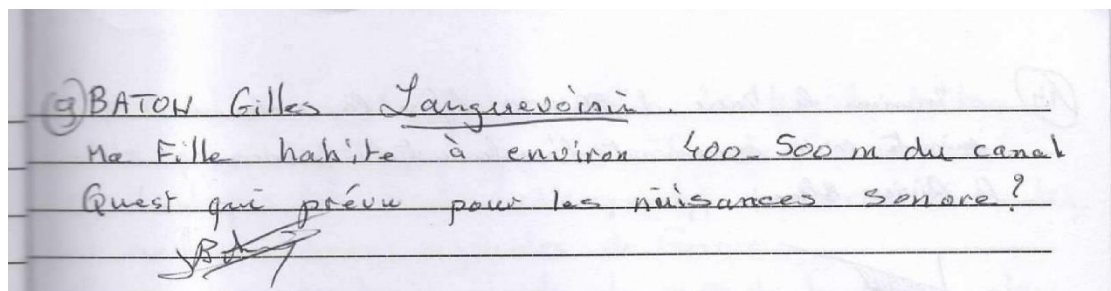 9) BATON Gilles Languevoisin.
Ma Fille habite à environ 400-500 m du canal
Quest qui prévu pour les nuisances sonore?